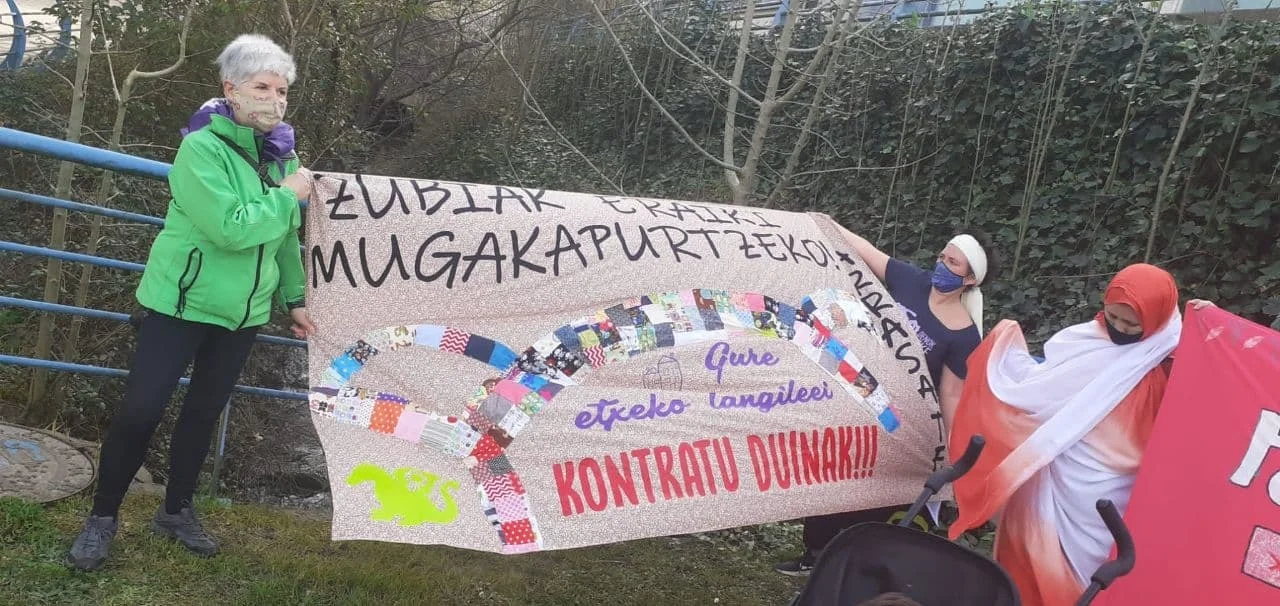 ZUBIAK ERAIKI
MUGAK APURTZEKO!
ARRASATE
Gure
etxeko langileei
KONTRATU DUINAK!!!